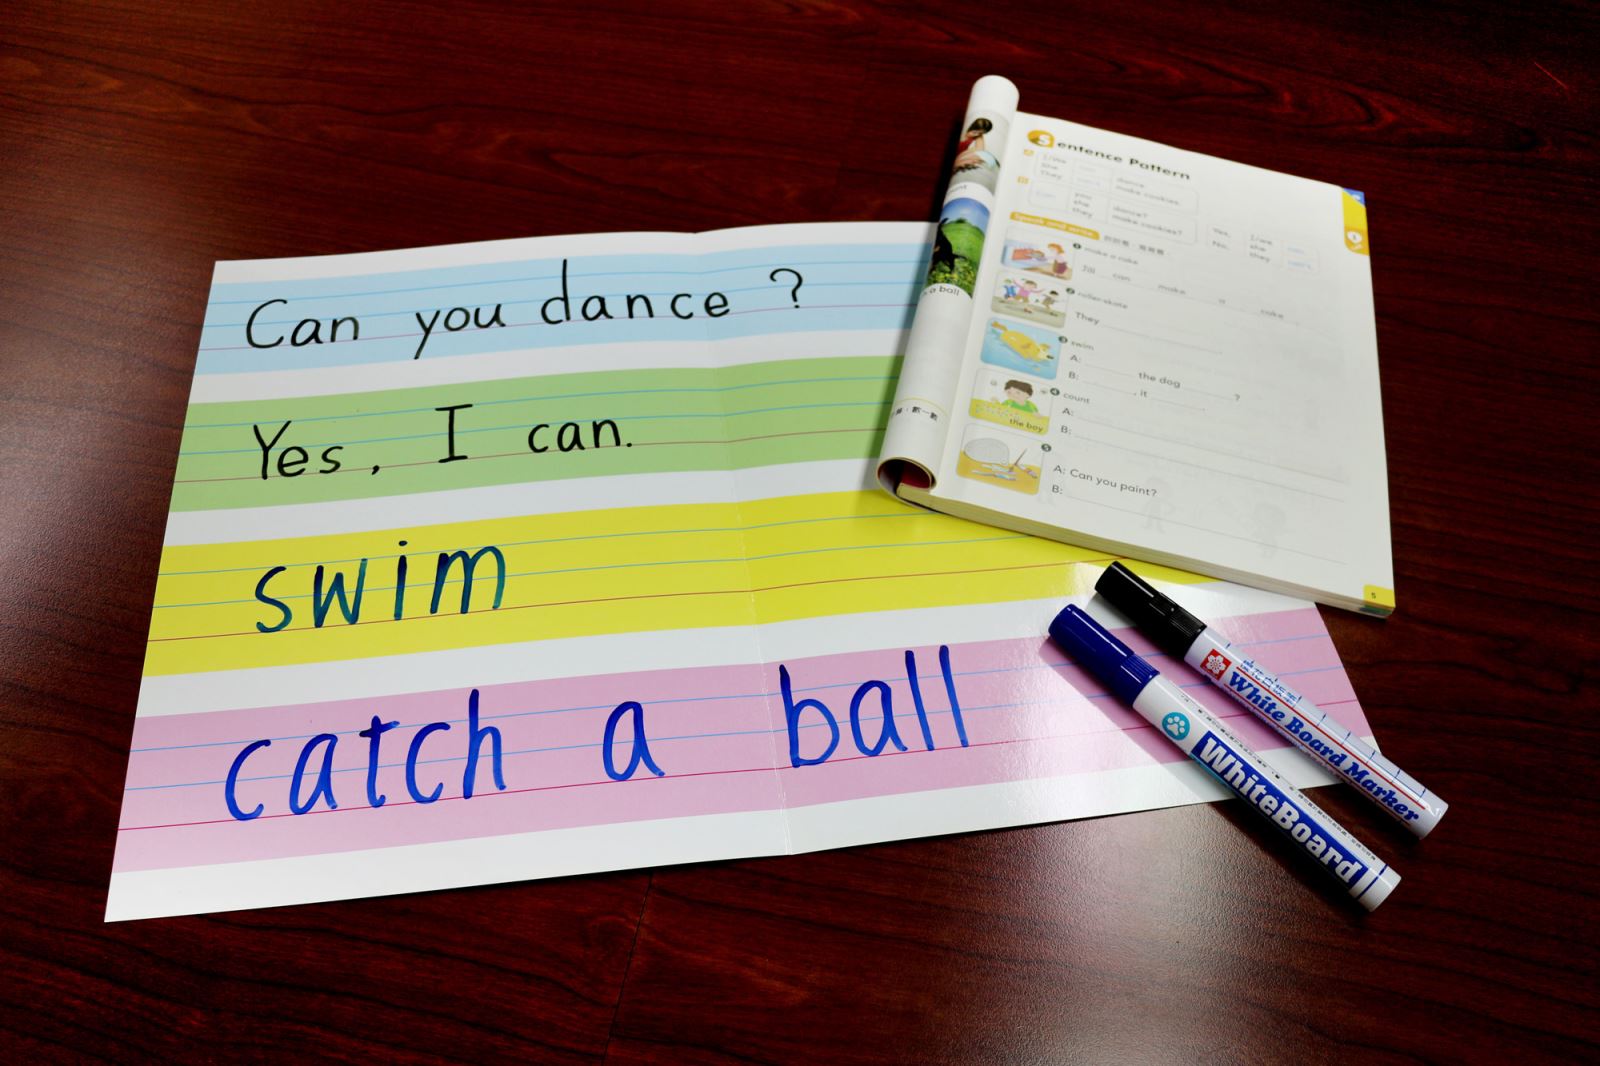 Can you dance ?
Yes, I can.
swim
catch a ball
a ball
數一數
Sentence Pattern
I/we
she
They
dance.
make cookies.
you
she
they
dance?
make cookies?
Yes,
No,
I/we
she
they
Speak and write
1 make a cake
Jill can make a cake
2 roller-skate
They
3 swim
A: the dog ?
B: , it
4 count
the boy
A:
B:
5
A: Can you paint?
B:
5
1
White Board Marker
WhiteBoard